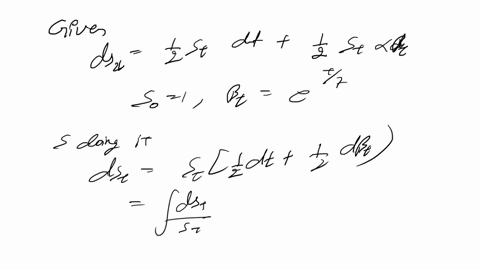 Given
dS_t = 1/2 S_t dt + 1/2 S_t dB_t
S_0 = 1, β_t = e^{t/7}
S doing it
dS_t = S_t [1/2 dt + 1/2 dβ_t)
= ∫ dS_t / S_t